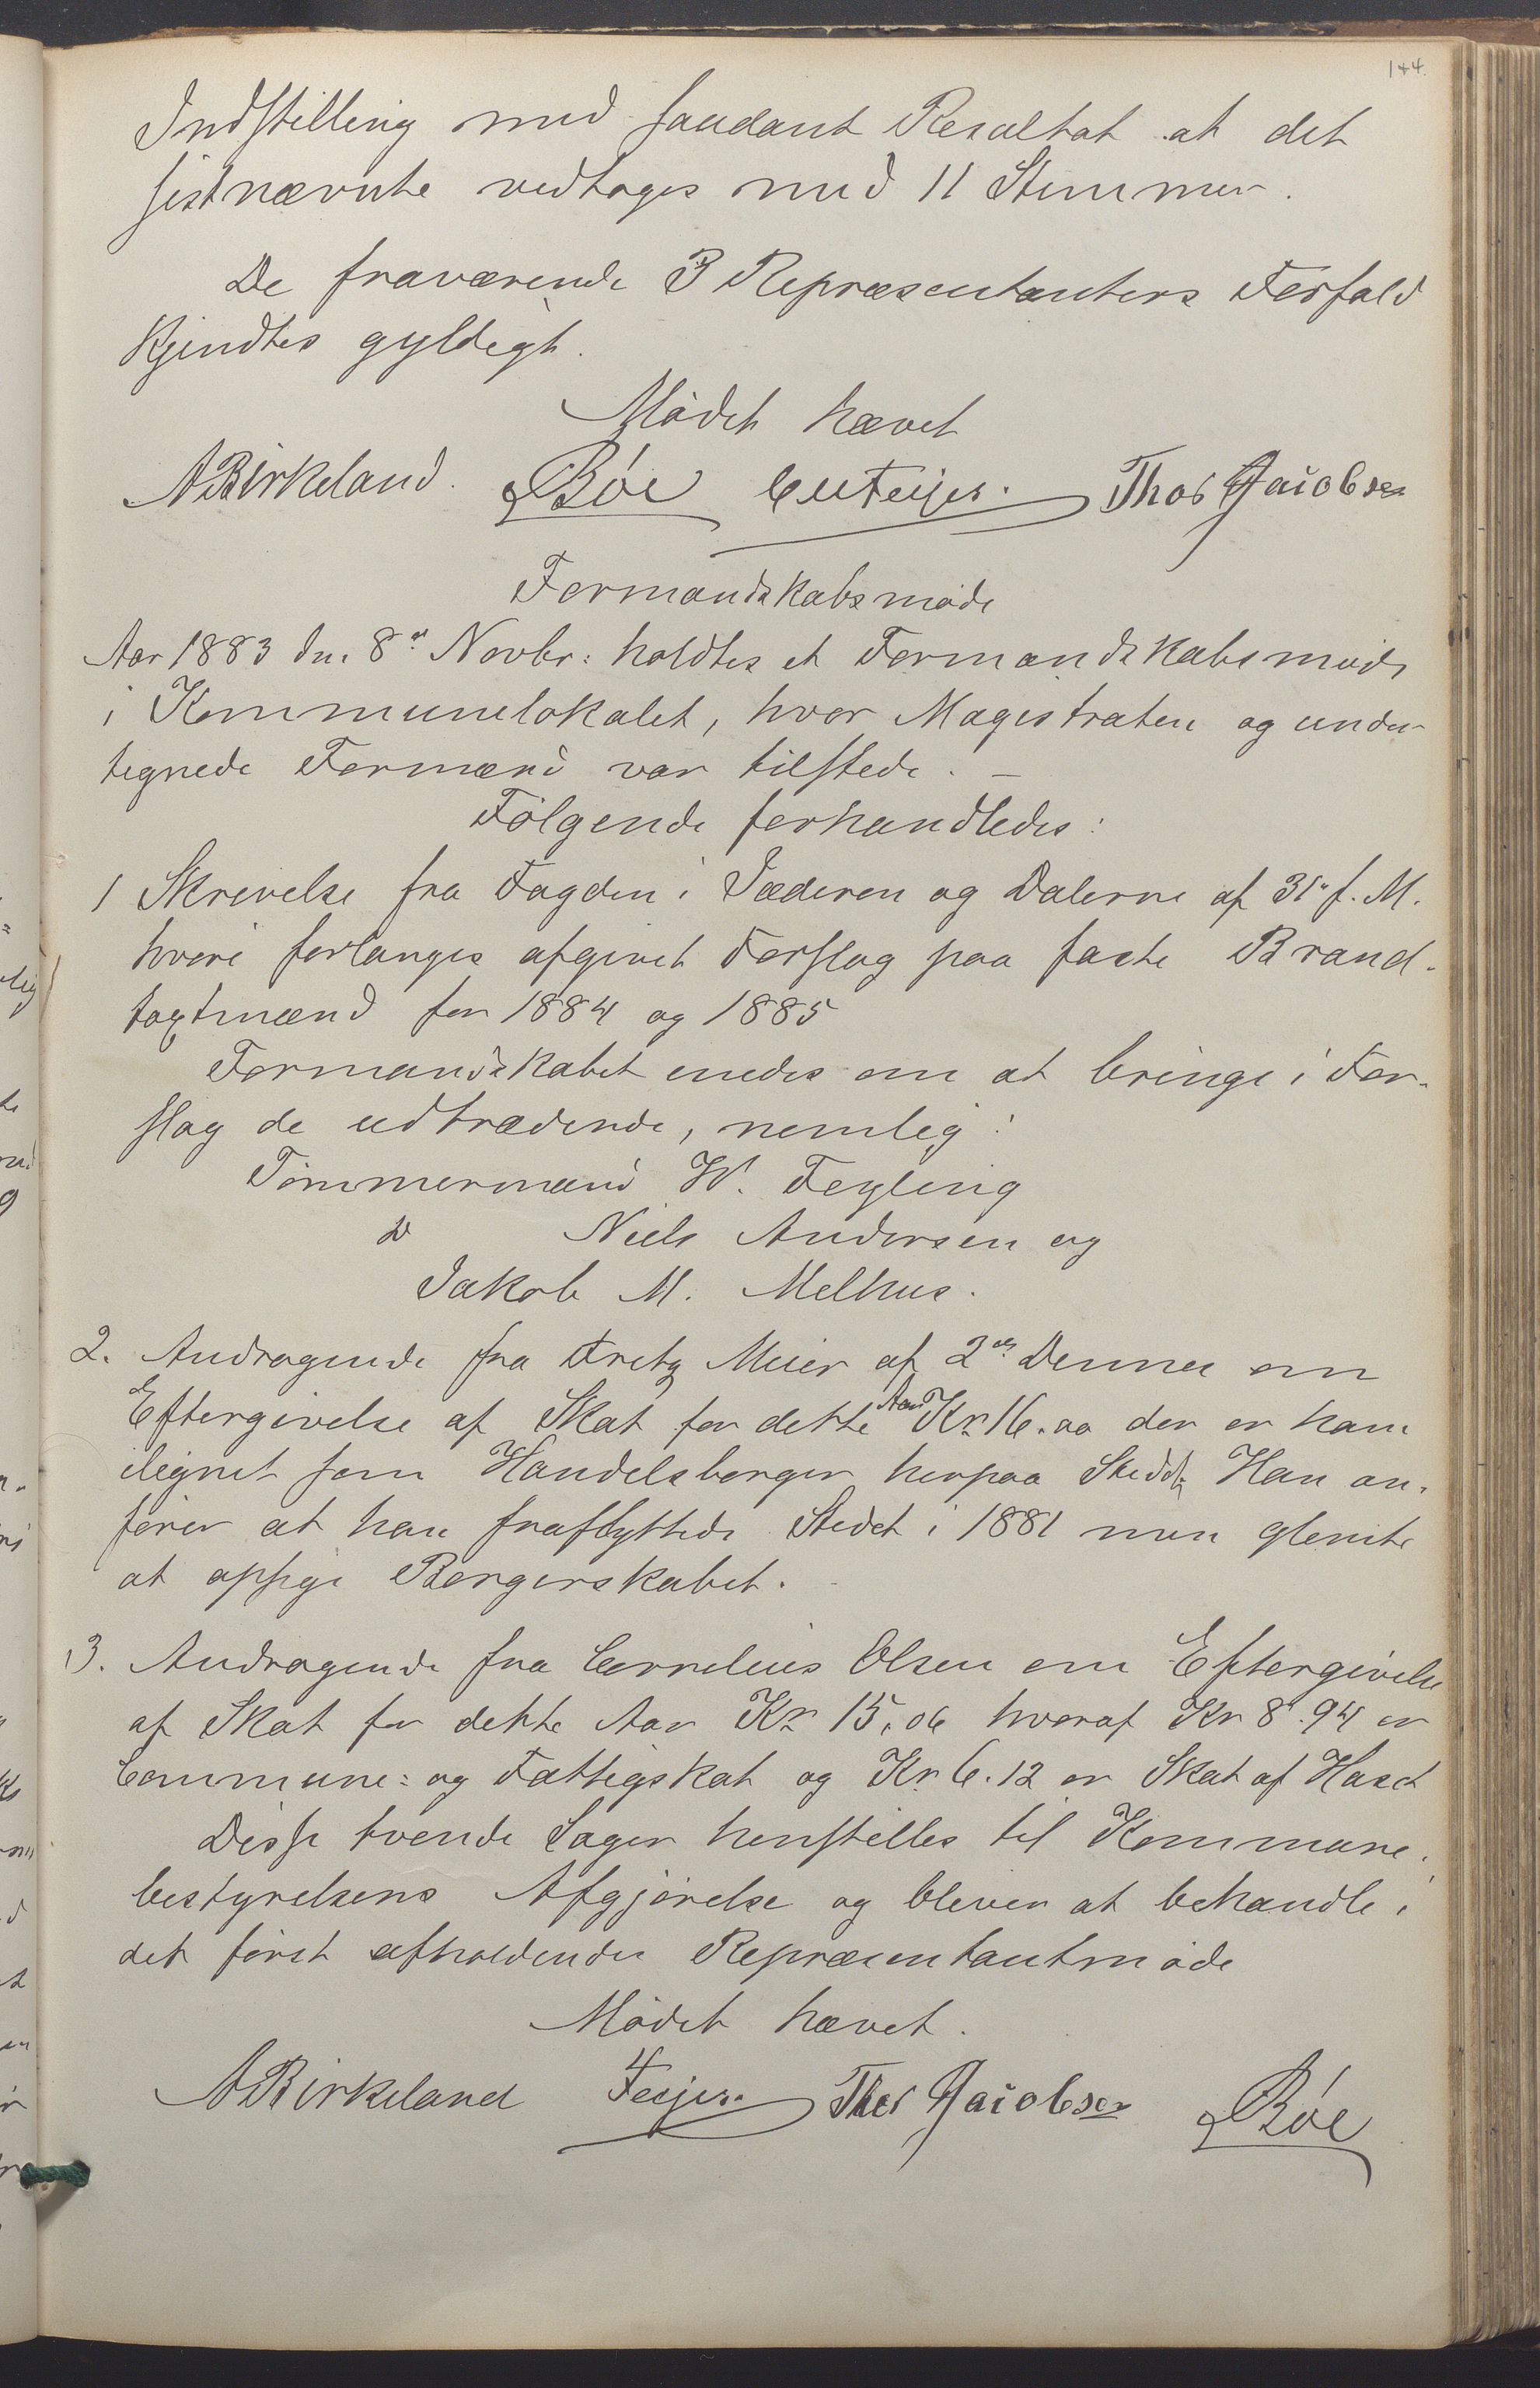 144.
Indstilling med saadant Resultat at det
sistnævnte vedtoges med 11 Stemmer.
De fraværende 3 Repræsentanters Forfald
kjendtes gyldigt.
Mödet hævet
A Birkeland. Böe Thos Jacobsen
Formandskabsmöde
Aar 1883 den 8de Novbr: holdtes et Formandskabsmöde
i Kommunelokalet, hvor Magistraten og under-
tegnede Formænd var tilstede. –
Fölgende forhandledes:
1 Skrivelse fra Fogden i Jæderen og Dalerne af 31te f. M.
hvori forlanges afgivet Forslag paa faste Brand-
taxtmænd for 1884 og 1885
Formandskabet enedes om at bringe i For-
slag de udtrædende, nemlig:
Tömmermænd W. Feyling
Do Niels Andersen og
Jakob M. Melhus.
2. Andragende fra Fretz Meier af 2den Dennes om
Eftergivelse af Skat for dette Aar Kr. 16.00 der er ham
ilignet som Handelsborger herpaa Stedet. Han an-
förer at han fraflyttede Stedet i 1881 men glemte
at opsige Borgerskabet.
3. Andragende fra Cornelius Olsen om Eftergivelse
af Skat for dette Aar Kr 15,06 hvoraf Kr 8.94 er
Commune= og Fattigskat og Kr 6.12 er Skat af Hased
Disse tvende Sager henstilles til Kommune-
bestyrelsens Afgjörelse og bliver at behandle i
det först afholdendes Repræsentantmöde
Mödet hævet.
A Birkeland Thos Jacobsen Böe